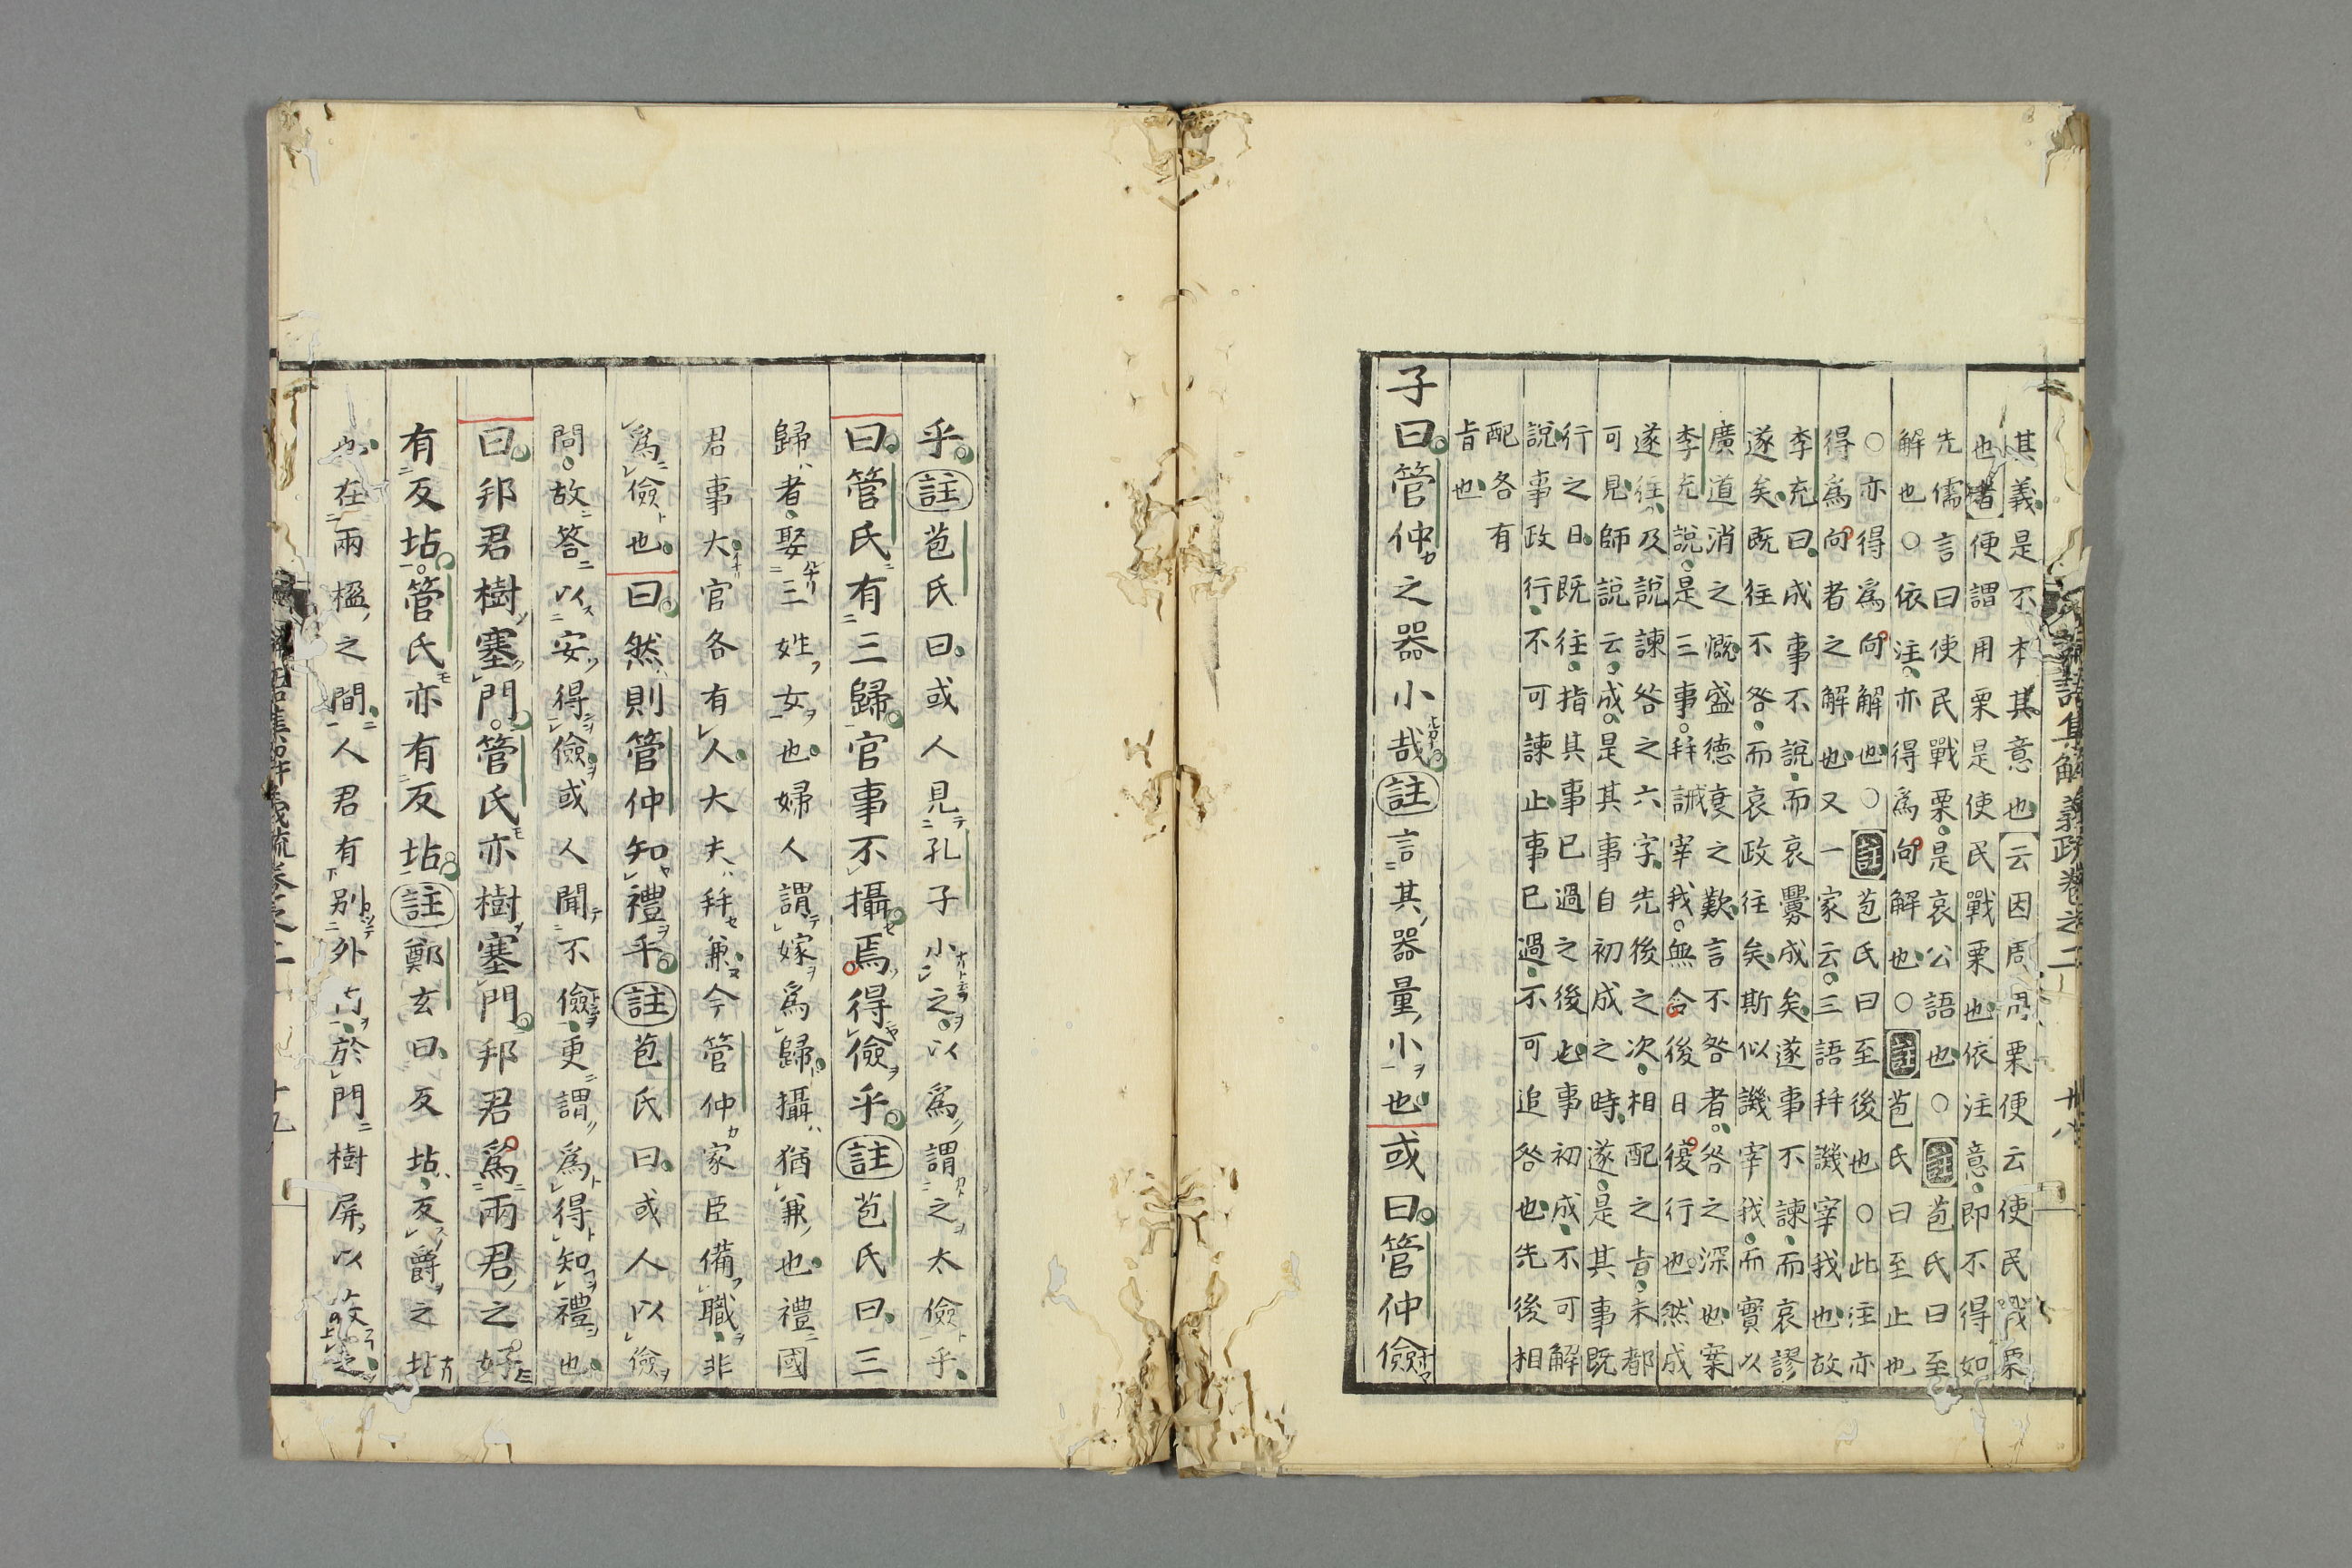 其義是不本其意也云因周用栗便云使民戰栗
也者便謂用栗是使民戰栗也依注意即不得如
先儒言曰使民戰栗是哀公語也○註苞氏曰至
解也○依注亦得爲向解也○註苞氏曰至止也
○亦得爲向解也○註苞氏曰至後也○此注亦
得爲向者之解也又一家云三語拜譏宰我也故
李充曰成事不說而哀釁成矣遂事不諫而哀謬
遂矣既往不咎而哀政往矣斯似譏宰我而實以
廣道消之慨盛德衰之歎言不咎者咎之深也案
李充說是三事拜誡宰我無令後日復行也然成
遂往及說諫咎之六字先後之次相配之旨未都
可見師說云成是其事自初成之時遂是其事既
行之日既往指其事已過之後也事初成不可解
說事政行不可諫止事已過不可追咎也先後相
配各有
旨也
子曰管仲之器小哉註言其器量小也或曰管仲儉
乎註苞氏曰或人見孔子小之以爲謂之太儉乎
曰管氏有三歸官事不攝焉得儉乎註苞氏曰三
歸者娶三姓女也婦人謂嫁爲歸攝猶兼也禮國
君事大官各有人大夫拜兼今管仲家臣備職非
爲儉也曰然則管仲知禮乎註苞氏曰或人以儉
問故答以安得儉或人聞不儉更謂爲得知禮也
曰邦君樹塞門管氏亦樹塞門邦君爲兩君之好
有反坫管氏亦有反坫註鄭玄曰反坫反爵之坫
也在兩楹之間人君有別外內於門樹屏以蔽之